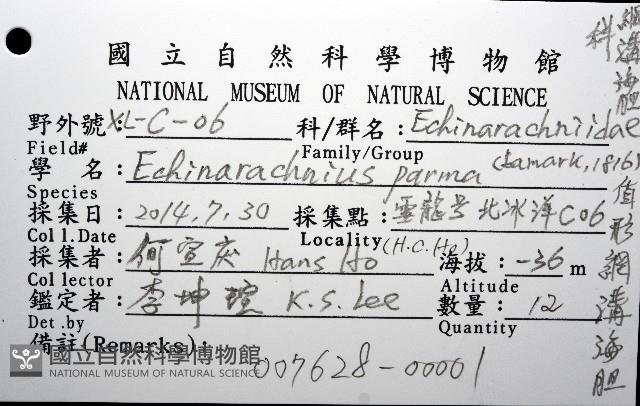 國立自然科學博物館
NATIONAL MUSEUM OF NATURAL SCIENCE
野外號: XL-C-06 科/群名: Echinarachniidae
Field# Family/Group
學名: Echinarachnius parma (Lamark, 1816)
Species
採集日: 2014.7.30 採集點: 雪龍号北冰洋C06
Coll.Date Locality (H.C.Ho)
採集者: 何宣庆 Hans Ho 海拔: -36 m
Collector Altitude
鑑定者: 李坤瑄 K.S. Lee 數量: 12
Det.by Quantity
備註(Remarks):
007628-00001
國立自然科學博物館
NATIONAL MUSEUM OF NATURAL SCIENCE
網溝海膽科
值形網溝海胆